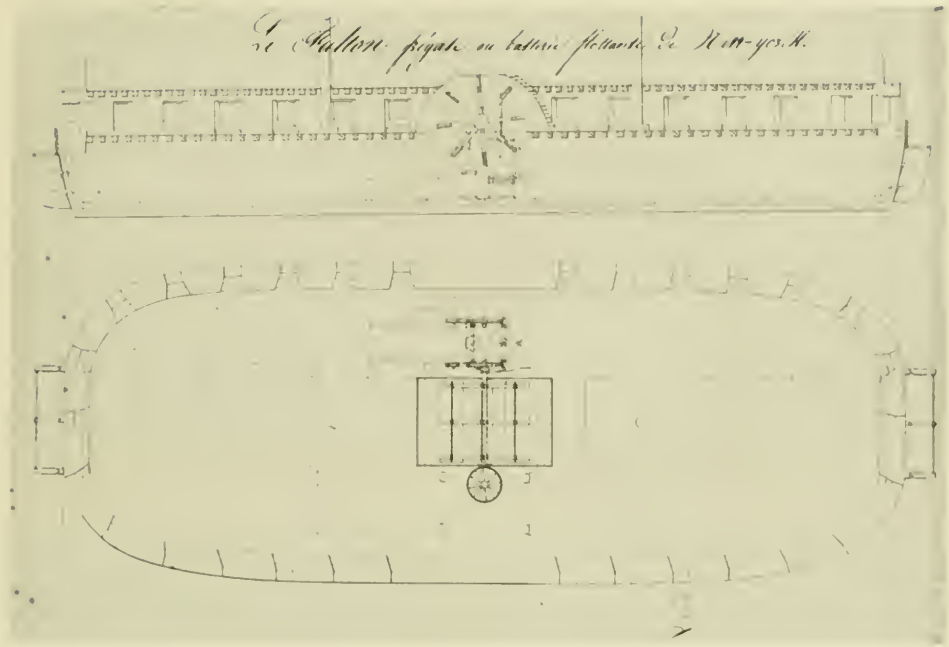 Le Fulton frégate ou batterie flottante de New-york.